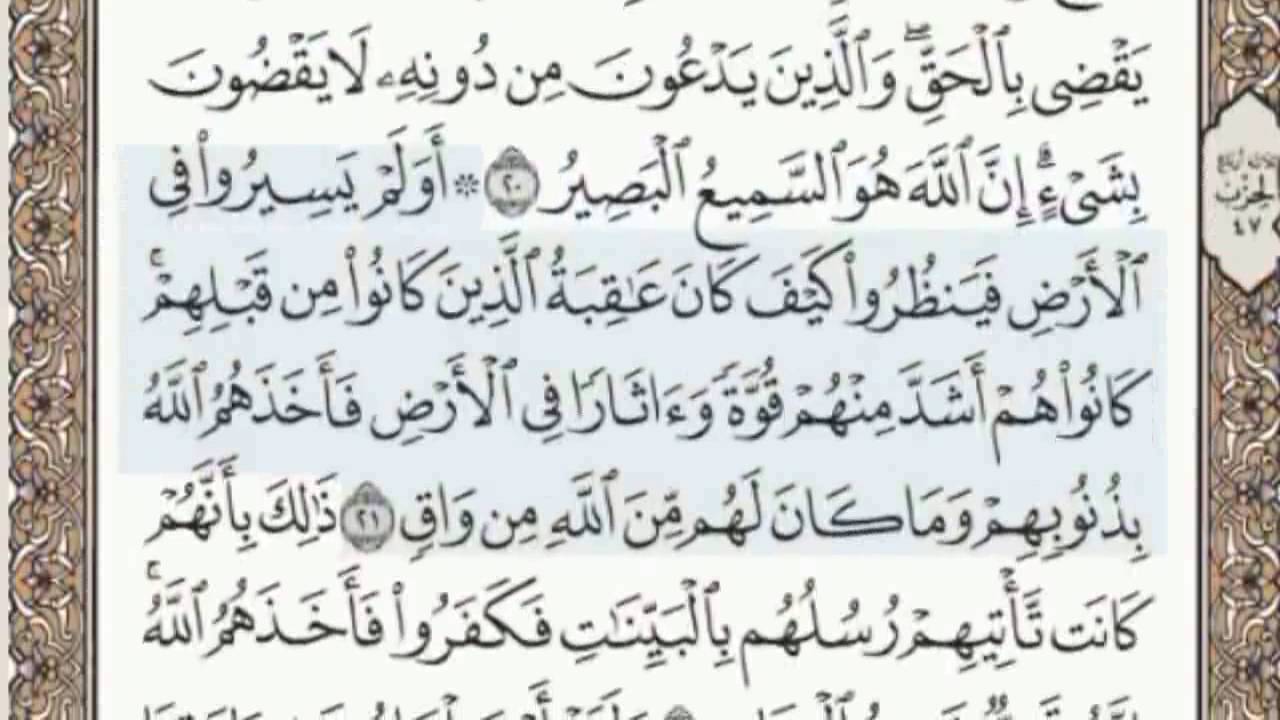 يَقْضِى بِٱلْحَقِّۖ وَٱلَّذِينَ يَدْعُونَ مِن دُونِهِۦ لَا يَقْضُونَ
بِشَىْءٍۗ إِنَّ ٱللَّهَ هُوَ ٱلسَّمِيعُ ٱلْبَصِيرُ ٢٠ ۞ أَوَلَمْ يَسِيرُوا۟ فِى
ٱلْأَرْضِ فَيَنظُرُوا۟ كَيْفَ كَانَ عَٰقِبَةُ ٱلَّذِينَ كَانُوا۟ مِن قَبْلِهِمْۚ
كَانُوا۟ هُمْ أَشَدَّ مِنْهُمْ قُوَّةً وَءَاثَارًا فِى ٱلْأَرْضِ فَأَخَذَهُمُ ٱللَّهُ
بِذُنُوبِهِمْ وَمَا كَانَ لَهُم مِّنَ ٱللَّهِ مِن وَاقٍ ٢١ ذَٰلِكَ بِأَنَّهُمْ
كَانَت تَّأْتِيهِمْ رُسُلُهُم بِٱلْبَيِّنَٰتِ فَكَفَرُوا۟ فَأَخَذَهُمُ ٱللَّهُۚ
ثلاثة أرباع
الحزب
٤٧